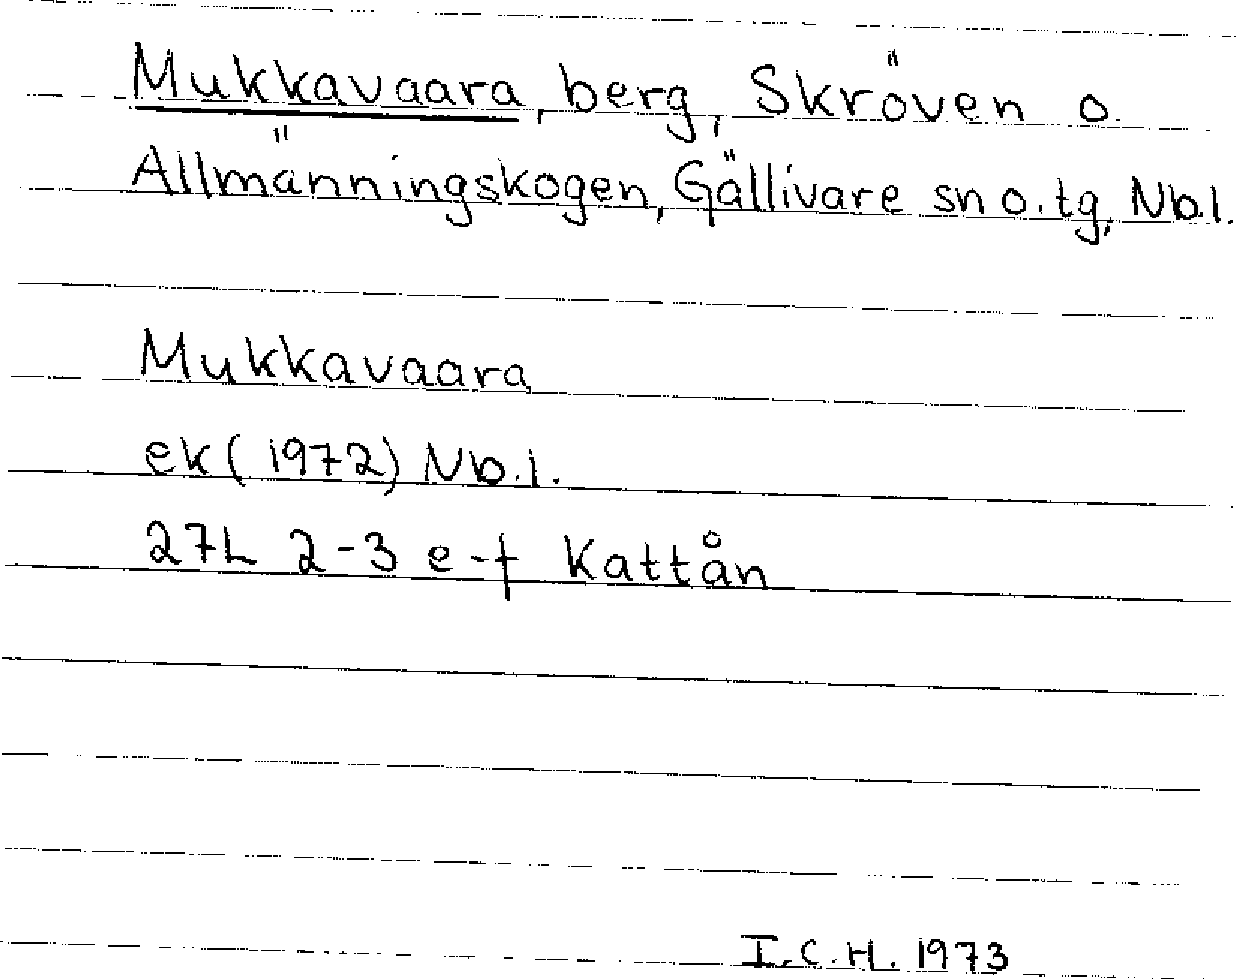 Mukkavaara, berg, Skröven o.
Allmänningskogen, Gällivare sn o. tg, Nb.l.
Mukkavaara
ek (1972) Nb.l.
27L 2-3 e-f Kattån
I.C.H. 1973